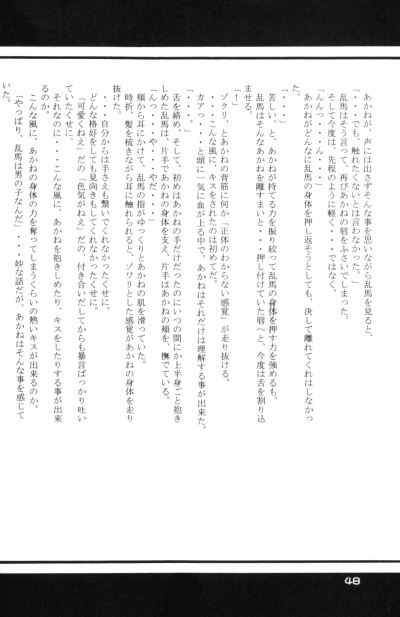 あかねが、声には出さずそんな事を思いながら乱馬を見ると、
「・・・でも、触れたくないとは言わなかった。」
乱馬はそう言って、再びあかねの唇をふさいでしまった。
そして今度は、先程のように軽く・・・ではなく、
「んんっ・・・・・・んっ・・・」
あかねがどんなに乱馬の身体を押し返そうとしても、決して離れてくれはしなかっ
た。
「・・・」
苦しい、と、あかねが持てる力を振り絞って乱馬の身体を押す力を強めるも、
乱馬はそんなあかねを離すまいと・・・押し付けていた唇へと、今度は舌を割り込
ませる。
「！」
ゾクリ、とあかねの背筋に何か「正体のわからない感覚」が走り抜ける。
・・・こんな風に、キスをされたのは初めてだ。
カアっ・・・と頭に一気に血が上る中で、あかねはそれだけは理解する事が出来た。
舌を絡め、そして、初めはあかねの手だけだったのにいつの間にか上半身ごと抱き
しめた乱馬は、片手であかねの身体を支え、片手はあかねの頬を、撫でている。
「んっ・・・や・・・やだ・・・」
頬から耳にかけて、乱馬の指がゆっくりとあかねの肌を滑っていた。
時折、髪を梳きながら耳に触れられると、ゾワリとした感覚があかねの身体を走り
抜けた。
・・・自分からは手さえも繋いでくれなかったくせに。
どんな格好をしても見向きもしてくれなかったくせに。
「可愛くねえ」だの「色気がねえ」だの、付き合いだしてからも暴言ばっかり吐い
ていたくせに。
それなのに・・・こんな風に・・・あかねを抱きしめたり、キスをしたりする事が出来
るのか。
こんな風に、あかねの身体の力を奪ってしまうくらいの熱いキスが出来るのか。
「やっぱり、乱馬は男の子なんだ」・・・妙な話だが、あかねはそんな事を感じて
いた。
48